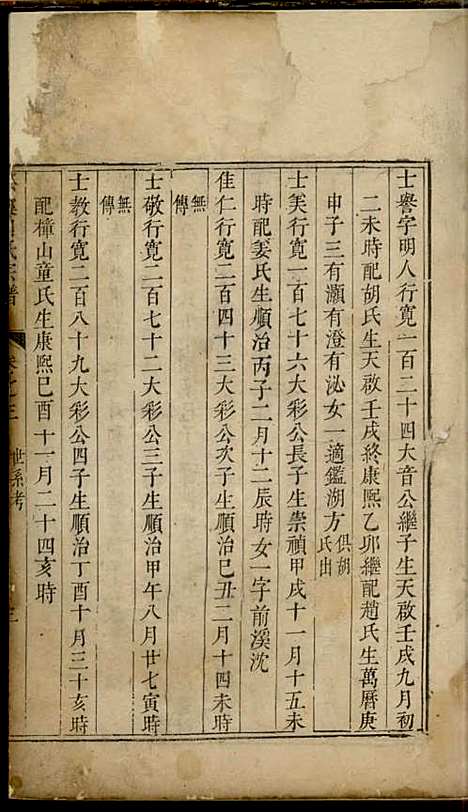 士譽字明人行寬一百二十四大音公繼子生天啟壬戌九月初
二未時配胡氏生天啟壬戌終康熙乙卯繼配趙氏生萬曆庚
申子三有灝有澄有泌女一適鑑湖方俱胡氏出
士美行寬一百七十六大彩公長子生崇禎甲戌十一月十五未
時配姜氏生順治丙子二月十二辰時女一字前溪沈
佳仁行寬二百四十三大彩公次子生順治己丑二月十四未時
無傳
士敬行寬二百七十二大彩公三子生順治甲午八月廿七寅時
無傳
士教行寬二百八十九大彩公四子生順治丁酉十月三十亥時
配檀山童氏生康熙己酉十一月二十四亥時
氏宗譜
卷之三
世系考